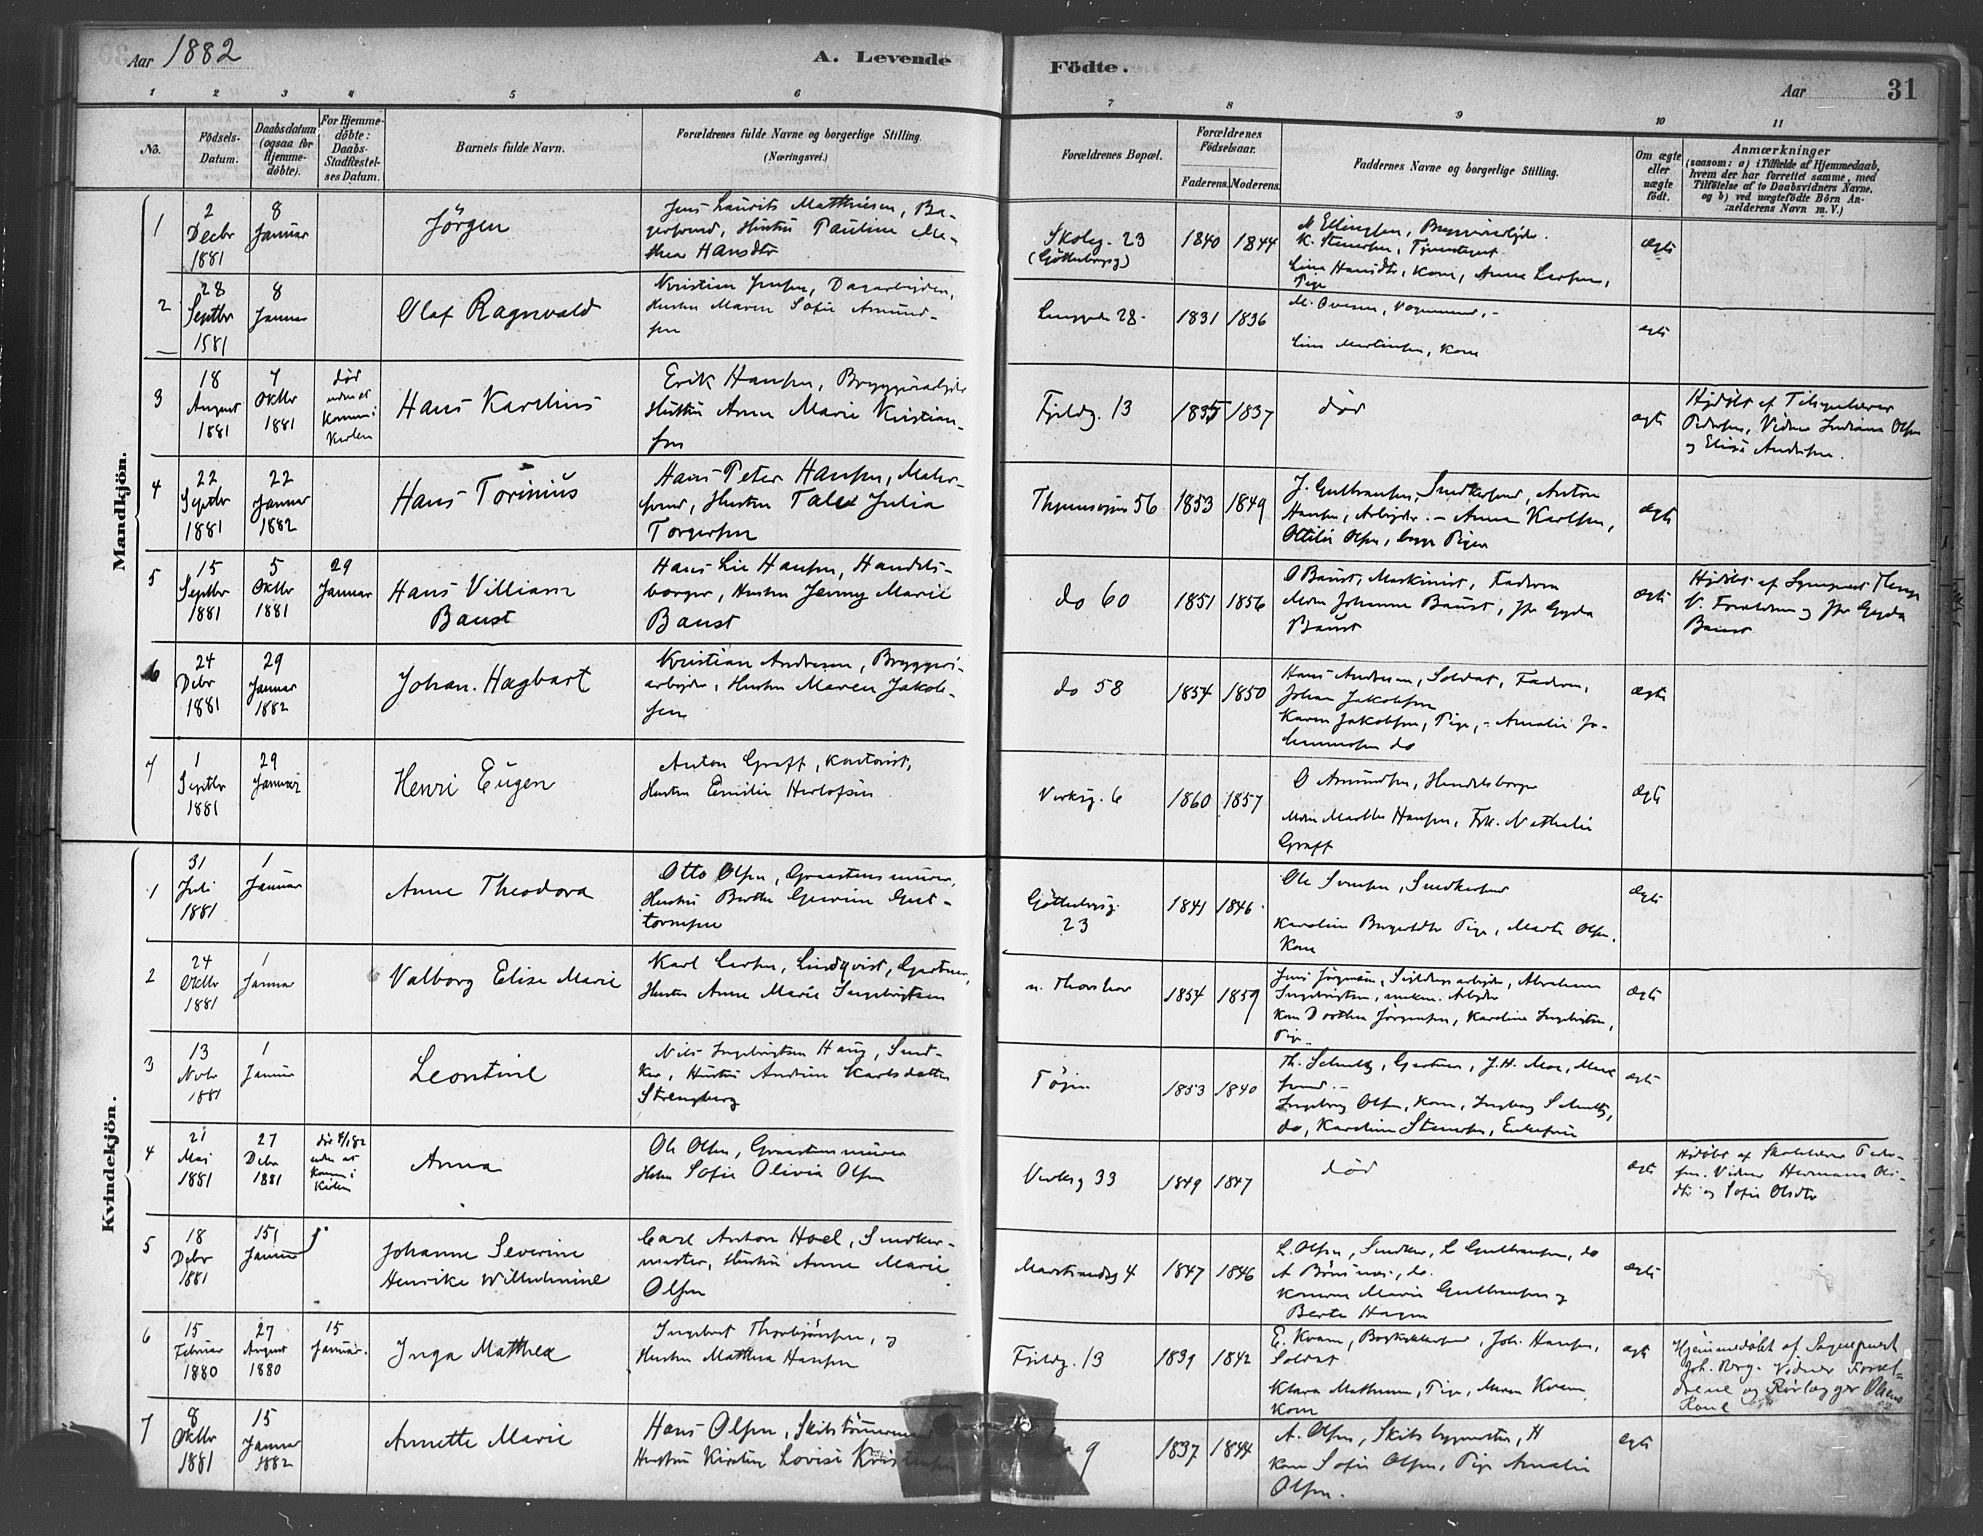 Aar 1882
A. Levende
Födte.
Aar
31
1 2 3 4 5 6 7 8 9 10 11
No.
Födsels-
Datum.
Daabsdatum
(ogsaa for
Hjemme-
döbte).
For Hjemme-
döbte:
Daabs-
Stadfæstel-
ses Datum.
Barnets fulde Navn.
Forældrenes fulde Navne og borgerlige Stilling.
(Næringsvei.)
Forældrenes Bopæl.
Forældrenes
Födselsaar.
Faderens. Moderens.
Faddernes Navne og borgerlige Stilling.
Om ægte
eller
uægte
födt.
Anmærkninger
(saasom: a) i Tilfælde af Hjemmedaab,
hvem der har forrettet samme, med
Tilföielse af to Daabsvidners Navne.
og b) ved uægtefödte Börn An-
melderens Navn m. V.)
Mandkjön.
1
2
Decbr
1881
8
Januar
Jörgen
Jens Laurits Matthiesen, Ba-
gersvend, Hustru Pauline Ma-
thea Hansdtr
Skoleg. 23
(Gøtteborgg)
1840 1844
M Ellingsen, Bryggeriarbejder.
K. Stenersen, Tjenestegut
Lina Hansdtr, Kone, Anna Larsen,
Pige
ægte
2
28
Septbr
1581
8
Januar
Olaf Ragnvald
Kristian Jensen, Dagarbejder,
Hustru Maren Sofie Amund-
sen
28.
1831 1836
M. Ovesen, Vognmand, -
Lina Martinsen, Kone
ægte
3
18
August
1881
7
Oktbr
1881
død
uden at
komme i
Kirken
Hans Karelius
Erik Hansen, Bryggeriarbejder
Hustru Anne Marie Kristian-
sen
Fjeldg. 13
1835 1837
død
ægte
Hjdøbt af
Pedersen, Vidner Indiana Olsen
og Elise Andersen.
4
22
Septbr
1881
22
Januar
1882
Hans Torinius
Hans Peter Hansen, Maler-
svend, Hustru Talea Julia
Torgersen
56
1853 1849
J. Gulbransen, Snedkersvend, Anton
Hansen, Arbejder. - Anna Karlsen,
Ottilie Olsen, begge Piger
ægte
5
15
Septbr
1881
5
Oktbr
1881
29
Januar
Hans Villiam
Baust
Hans Lie Hansen, Handels-
borger, Hustru Jenny Marie
Baust
do 60
1851 1856
O Baust, Maskinist, Faderen
Mdm Johanne Baust, Jfr Gyda
Baust
ægte
Hjdøbt af Sognepræst
V. Forældrene og Jfr Gyda
Baust
6
24
Debr
1881
29
Januar
1882
Johan Hagbart
Kristian Andresen, Bryggeri-
arbejder, Hustru Maren Jakob-
sen
do 58
1854 1850
Hans Andresen, Soldat, Faderen,
Johan Jakobsen
Karen Jakobsen, Pige, - Amalie Jo-
hannesen do
ægte
7
1
Septbr
1881
29
Januar
Henri Eugen
Anton Graff, Kontorist,
Hustru Emilie Herlofsen
Verksg. 6
1860 1857
O Amundsen, Handelsborger
Mdm Marthe Hansen, Frk. Nathalie
Graff
ægte
Kvindekjön.
1
31
Juli
1881
1
Januar
Anne Theodora
Otto Olsen, Graastensmurer,
Hustru Berthe Gurine Gut-
tormsen
Gøtteborgg.
23
1841 1846
Ole Svensen, Snedkersvend
Karoline Borgersdtr Pige, Marte Olsen,
Kone
ægte
2
24
Oktbr
1881
1
Januar
Valborg Elise Marie
Karl Larsen, Lindqvist, Gartner,
Hustru Anne Marie Ingebrigtsen
n. Thorshov
1854 1859
Jens Jørgensen, Seildugsarbejder, Abraham
Ingebrigtsen, mekan. Arbejder
Kone Dorthea Jørgensen, Karoline Ingebrigtsen,
Pige
ægte
3
13
Novbr
1881
1
Januar
Leontine
Nils Ingebrigtsen Haug, Sned-
ker, Hustru Andrine Karlsdatter
Strengberg
Tøjen
1853 1840
Th. Schultz, Gartner, J.H. Moe,
svend. -
Ingeborg Olsen, Kone, Ingeborg Schultz,
do, Karoline Stenersen, Enkefrue
ægte
4
21
Maj
1881
27
Debr
1881
død 4/1 82
uden at
komme i
Kirken
Anna
Ole Olsen, Graastensmurer
Hustru Sofie Olivia Olsen
Verksg 33
1849 1847
død
ægte
Hjdøbt af Skolelærer Peder-
sen. Vidner Hermana Ols-
dtr og Sofie Olsdtr
5
18
Debr
1881
15
Januar
Johanne Severine
Henrike Wilhelmine
Carl Anton Hoel, Snedker-
mester, Hustru Anne Marie
Olsen
Marstrandsg 4
1847 1846
L. Olsen, Snedker, L Gulbransen, do
A Børsnes, do.
Konerne Marie Gulbransen og
Berte Hagen
ægte
6
15
Februar
1880
27
August
1880
15
Januar.
Inga Matthea
Ingebret Thorbjørnsen, og
Hustru Matthea Hansen
Fjeldg. 13
1839 1842
E. Kvam, Bogtrykkersvend, Joh. Hansen,
Soldat
Klara Mathiesen, Pige, Maren Kvam
Kone
ægte
Hjemmedøbt af Sognepræst
Joh. Berg. Vidner Foræl-
drene og Rørlægger Olsens
Kone
7
8
Oktbr
1881
15
Januar
1882
Annette Marie
Hans Olsen, Skibstømmermand
Hustru Kirstine Lovise Kristensen
9
1837 1844
A. Olsen, Skibsbygmester, H
Kone Sofie Olsen, Pige Amalie
Olsen.
ægte